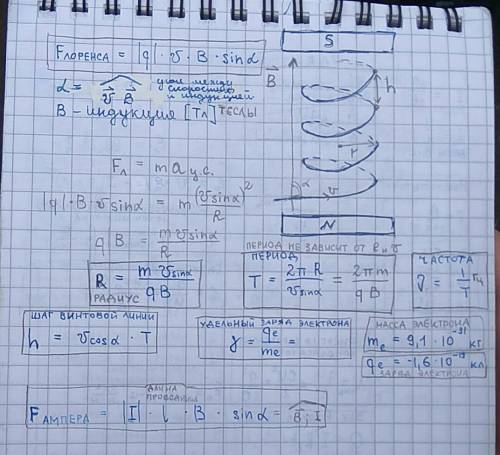 Fлоренса = |q| · v · B · sinα
α = v⃗ B⃗ угол между скоростью и индукцией
B – индукция [Тл] ТЕСЛЫ
S
B⃗
h
r
α
v
N
Fл = m a ц.с.
|q| · B · v sinα = m (v sinα)² / R
q B = m v sinα / R
R = m v sinα / q B
РАДИУС
ПЕРИОД НЕ ЗАВИСИТ ОТ R и v
ПЕРИОД
T = 2π R / v sinα = 2π m / q B
ЧАСТОТА
ν = 1 / T Гц
ШАГ ВИНТОВОЙ ЛИНИИ
h = v cosα · T
УДЕЛЬНЫЙ ЗАРЯД ЭЛЕКТРОНА
γ = qe / me =
МАССА ЭЛЕКТРОНА
me = 9,1 · 10⁻³¹ кг
qe = -1,6 · 10⁻¹⁹ кл
ЗАРЯД ЭЛЕКТРОНА
ДЛИНА ПРОВОДНИКА
FАМПЕРА = |I| · l · B · sinα = B⃗; I